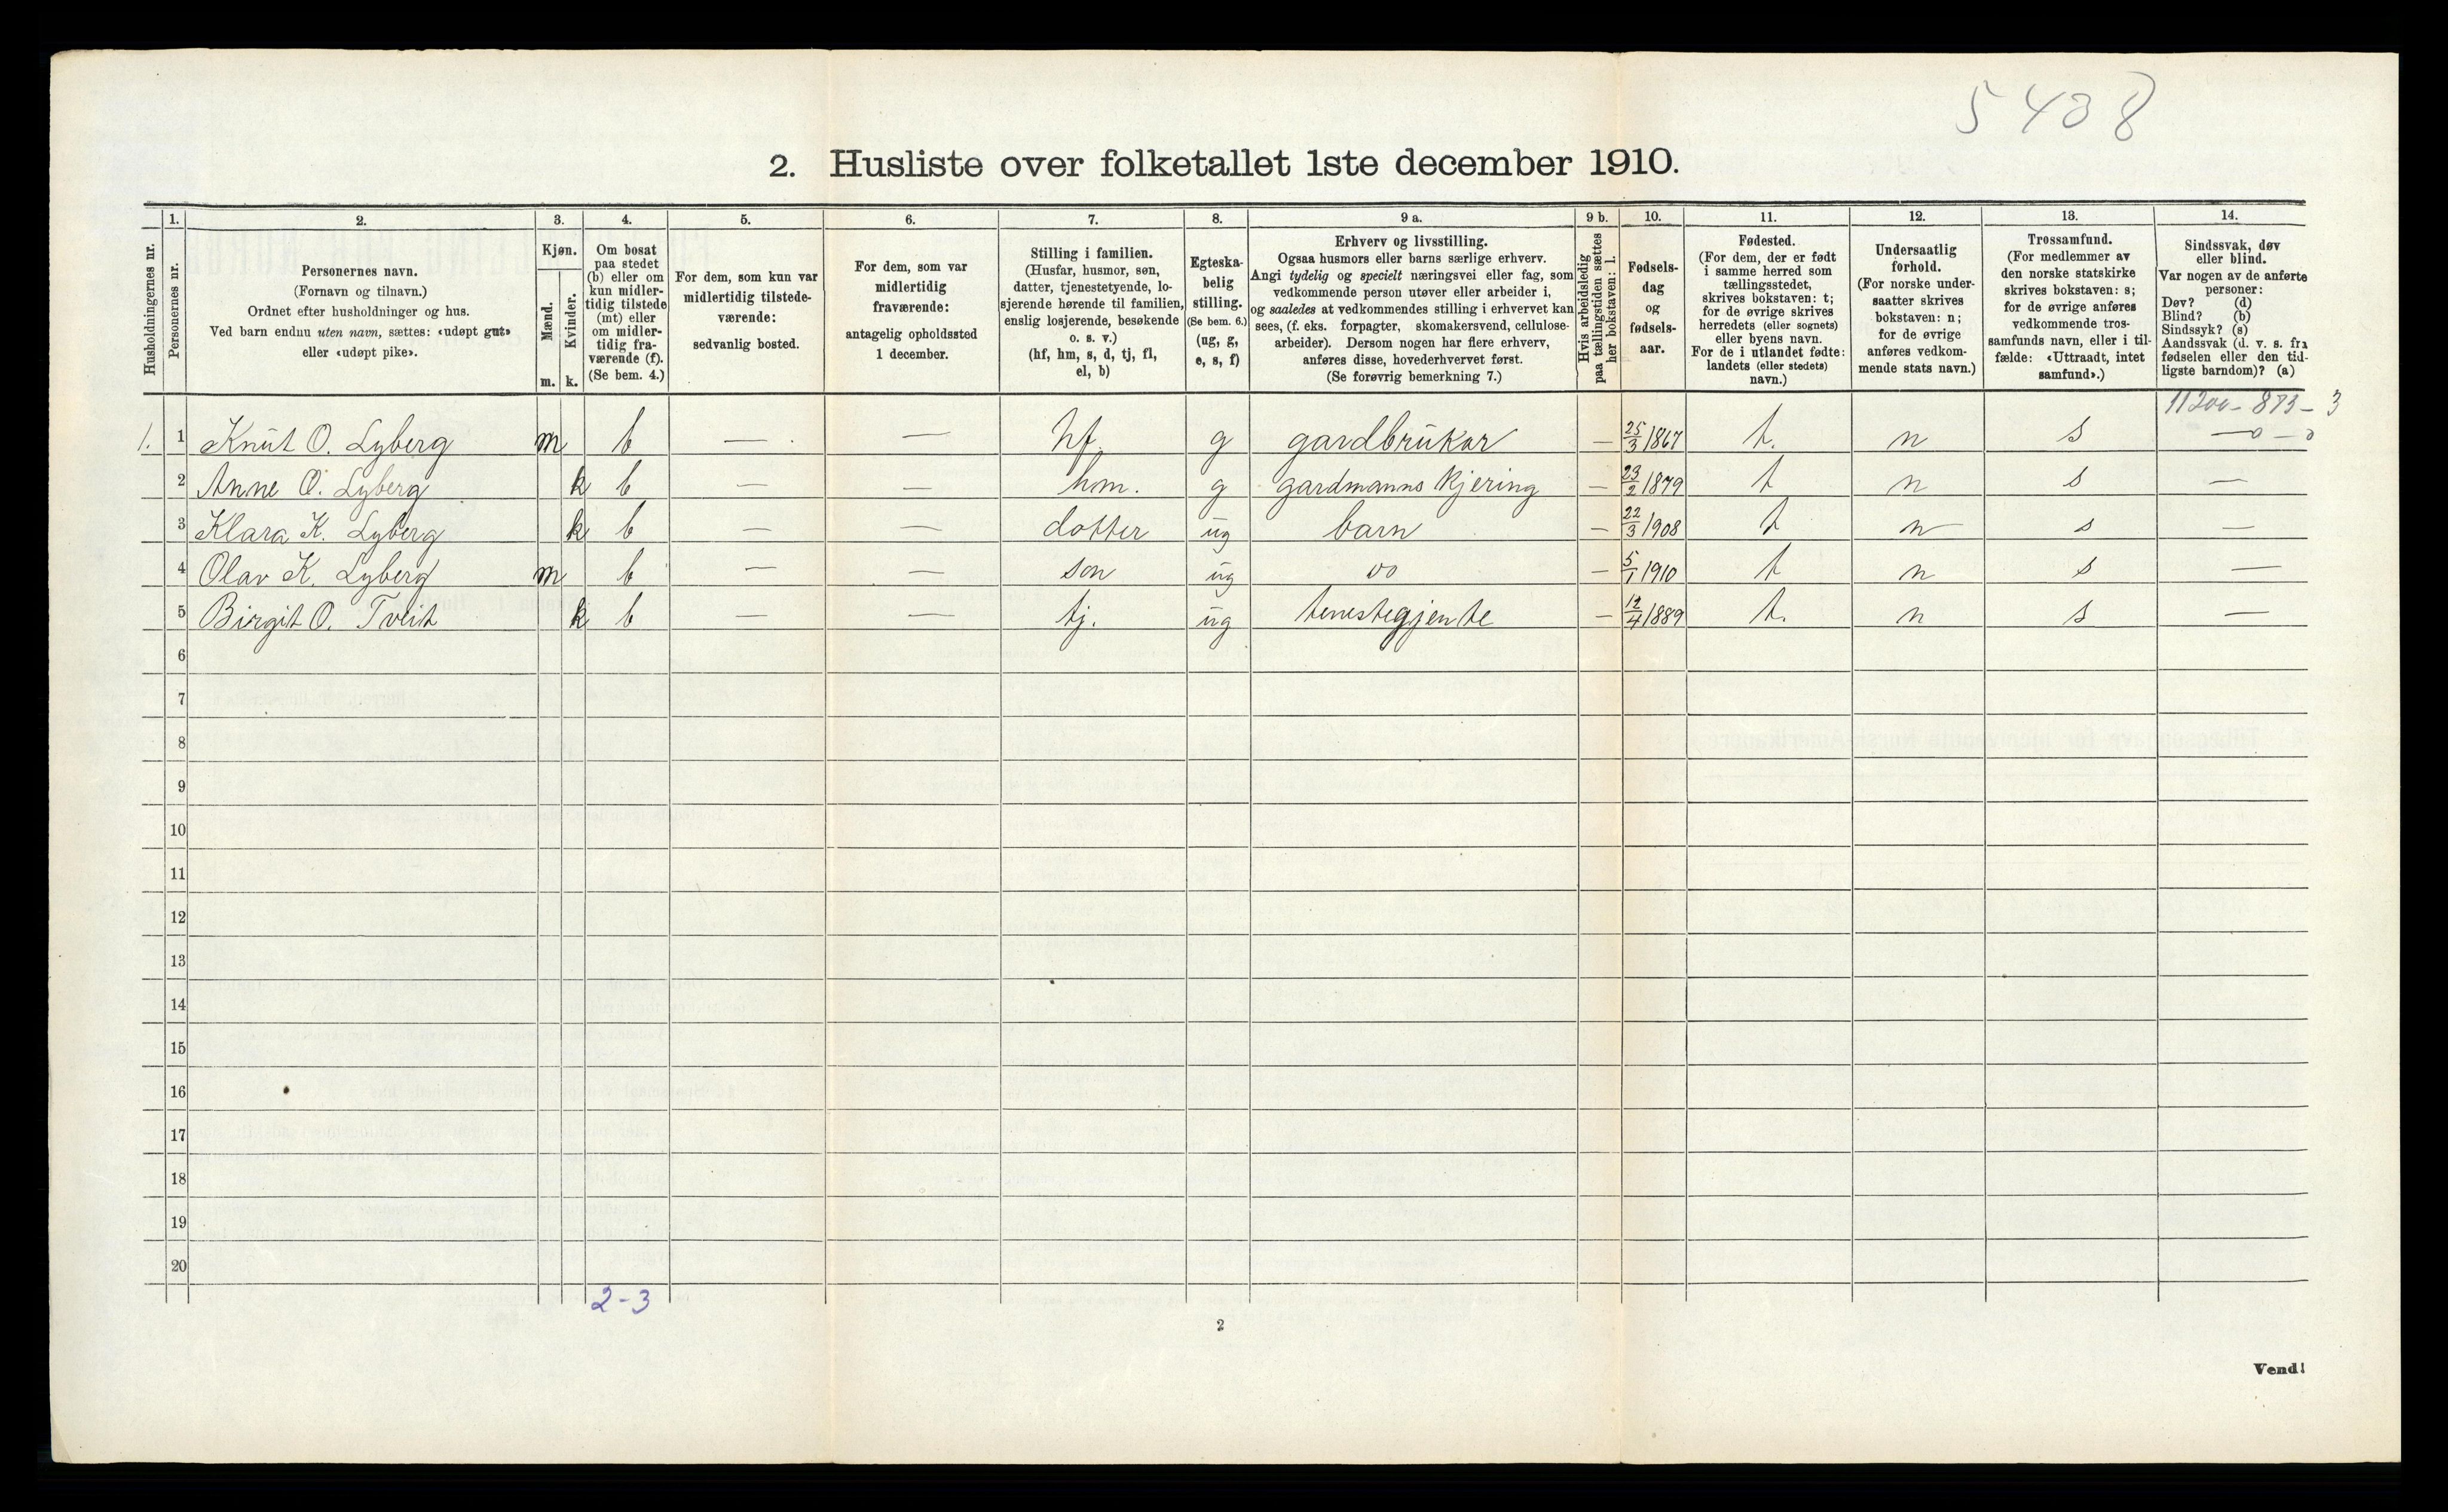 5408
2. Husliste over folketallet 1ste december 1910.
Husholdningernes nr.
1.
Personernes nr.
2.
Personernes navn.
(Fornavn og tilnavn.)
Ordnet efter husholdninger og hus.
Ved barn endnu uten navn, sættes: «udøpt gut»
eller «udøpt pike».
3.
Kjøn.
Mænd.
Kvinder.
m. k.
4.
Om bosat
paa stedet
(b) eller om
kun midler-
tidig tilstede
(mt) eller
om midler-
tidig fra-
værende (f).
(Se bem. 4.)
5.
For dem, som kun var
midlertidig tilstede-
værende:
sedvanlig bosted.
6.
For dem, som var
midlertidig
fraværende:
antagelig opholdssted
1 december.
7.
Stilling i familien.
(Husfar, husmor, søn,
datter, tjenestetyende, lo-
sjerende hørende til familien,
enslig losjerende, besøkende
o. s. v.)
(hf, hm, s, d, tj, fl,
el, b)
8.
Egteska-
belig
stilling.
(Se bem. 6.)
(ug, g,
e, s, f)
9 a.
Erhverv og livsstilling.
Ogsaa husmors eller barns særlige erhverv.
Angi tydelig og specielt næringsvei eller fag, som
vedkommende person utøver eller arbeider i,
og saaledes at vedkommendes stilling i erhvervet kan
sees, (f. eks. forpagter, skomakersvend, cellulose-
arbeider). Dersom nogen har flere erhverv,
anføres disse, hovederhvervet først.
(Se forøvrig bemerkning 7.)
9 b.
Hvis arbeidsledig
paa tællingstiden sættes
her bokstaven: l.
10.
Fødsels-
dag
og
fødsels-
aar.
11.
Fødested.
(For dem, der er født
i samme herred som
tællingsstedet,
skrives bokstaven: t;
for de øvrige skrives
herredets (eller sognets)
eller byens navn.
For de i utlandet fødte:
landets (eller stedets)
navn.)
12.
Undersaatlig
forhold.
(For norske under-
saatter skrives
bokstaven: n;
for de øvrige
anføres vedkom-
mende stats navn.)
13.
Trossamfund.
(For medlemmer av
den norske statskirke
skrives bokstaven: s;
for de øvrige anføres
vedkommende tros-
samfunds navn, eller i til-
fælde: «Uttraadt, intet
samfund».)
14.
Sindssvak, døv
eller blind.
Var nogen av de anførte
personer:
Døv? (d)
Blind? (b)
Sindssyk? (s)
Aandssvak (d. v. s. fra
fødselen eller den tid-
ligste barndom)? (a)
11200-873-3
1. 1 Knut O. Lyberg m b — — hf g gardbrukar — 25/3 1867 t. n s —0—0
2 Anne O. Lyberg k b — — hm. g gardmanns kjering — 23/2 1879 t n s —
3 Klara K. Lyberg k b — — dotter ug barn — 22/3 1908 t n s —
4 Olav K. Lyberg m b — — son ug oo — 5/1 1910 t n s —
5 Birgit O. Tveit k b — — tj. ug tenestegjente — 12/4 1889 t. n s —
6
7
8
9
10
11
12
13
14
15
16
17
18
19
20
2-3
2
Vend!